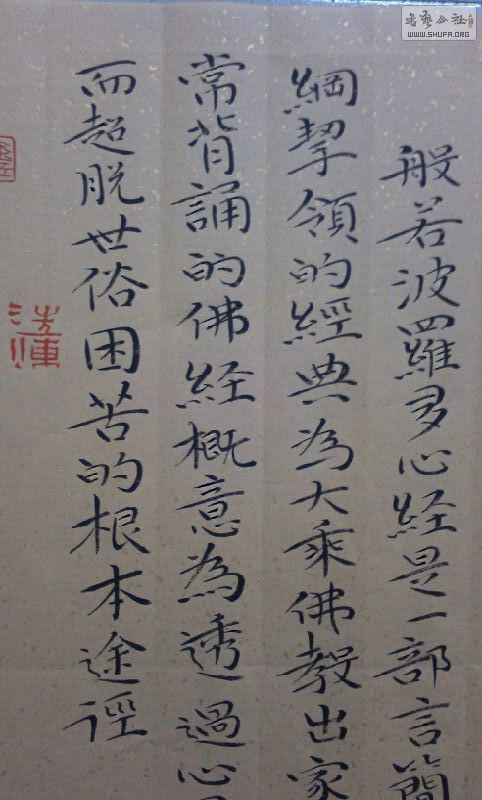 般若波羅多心経是一部言簡
綱挈領的經典為大乘佛教出家
常背誦的佛経概意為透過心
而超脱世俗困苦的根本途徑
WWW.SHUFA.ORG